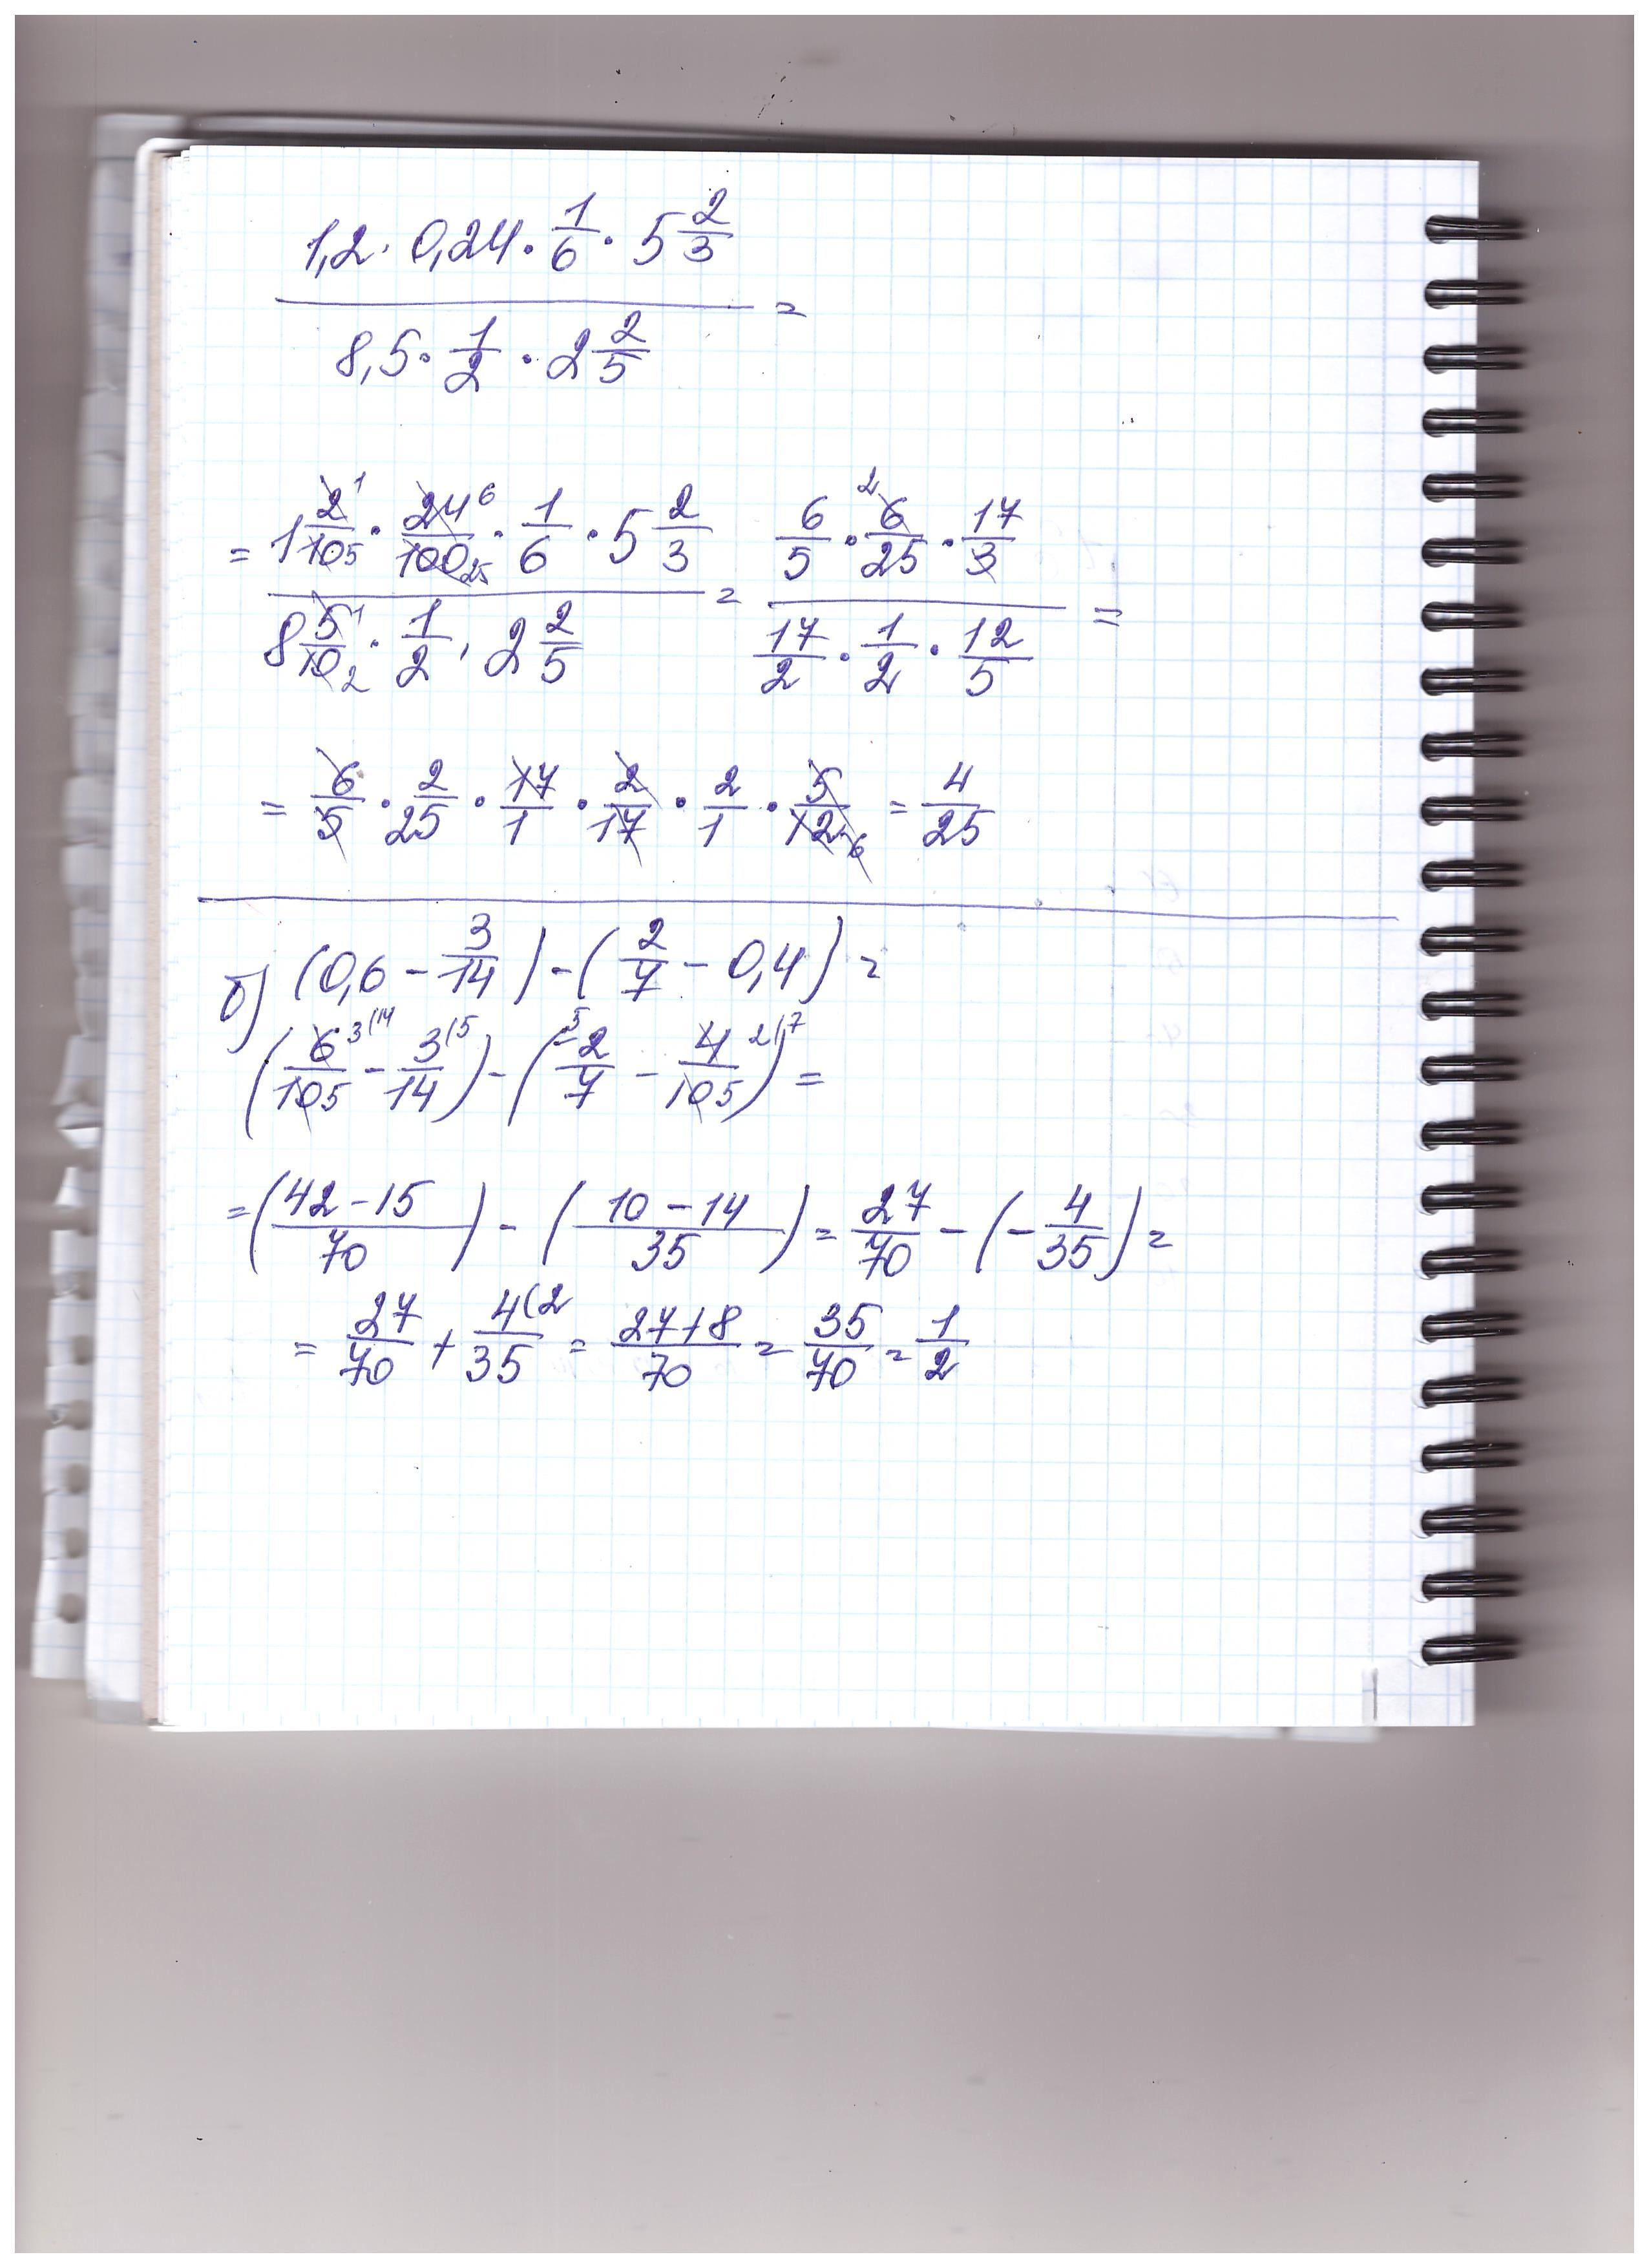 1,2 · 0,24 · 1/6 · 5 2/3
=
8,5 · 1/2 · 2 2/5
= 1 2/10 1/5 · 24/100 6/25 · 1/6 · 5 2/3 / 8 5/10 1/2 · 1/2 · 2 2/5 = 6/5 · 6/25 2 · 17/3 / 17/2 · 1/2 · 12/5 =
= 6/5 · 2/25 · 17/1 · 2/17 · 2/1 · 5/12 6 = 4/25
б) (0,6 - 3/14) - (2/7 - 0,4) =
(6/10 3/5 (14 - 3/14 (5) - (5 2/7 - 4/10 2/5 (7) =
= (42 - 15 / 70) - (10 - 14 / 35) = 27/70 - (- 4/35) =
= 27/70 + 4/35 (2 = 27 + 8 / 70 = 35/70 = 1/2